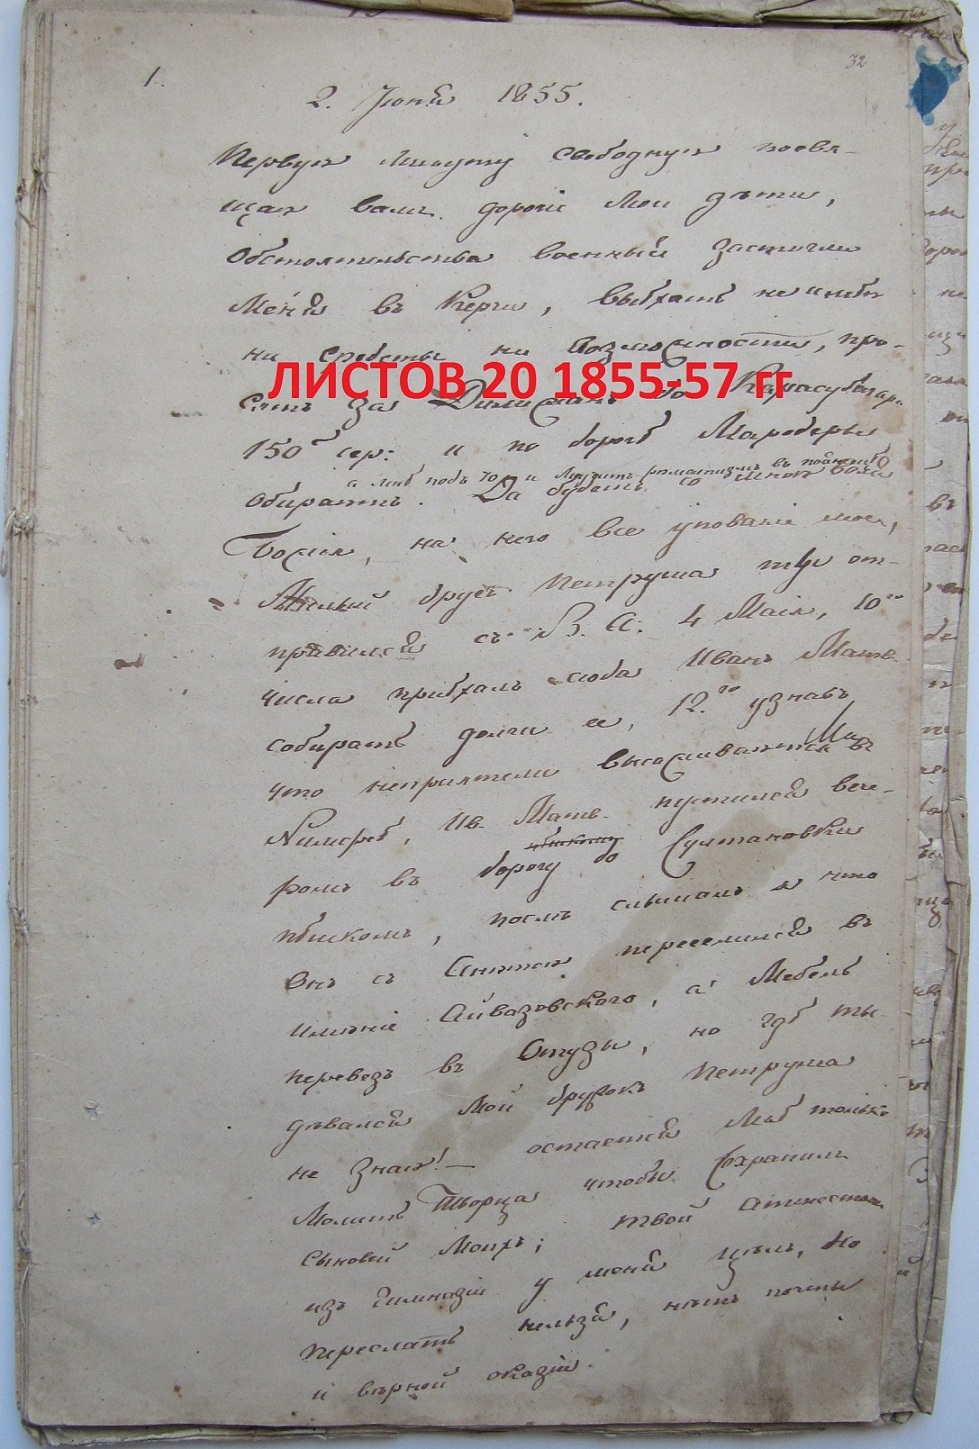 32
1.
2. Июня 1855.
Первую минуту свободную посвя-
щаю вамъ дорогіе мои дѣти,
Обстоятельства военный застигли
Меня въ Керчи, выѣхать не имѣю
ни средствъ ни возможности, про-
ЛИСТОВ 20 1855-57 гг
сятъ за до Карасубазара
150 сер: и по дорогѣ Мародеры
а мнѣ подъ 70 и ревматизмъ въ
Обираютъ. Да будетъ со мной воля
Божія, на него все упованіе мое,
Милый другъ Петруша отъ-
правился съ 4 Маія, 10го
числа пріѣхалъ сюда Иванъ Матв.
собирать долги ее, 12го узнавъ
что непріятели высаживаются въ
Ив. Матв. пустился вече-
ромъ въ дорогу до Султановки
пѣшкомъ, послѣ слышалъ я что
Онъ съ переселился въ
имѣніе Айвазовского, а Мебель
перевезъ въ Отузы, но гдѣ ты
дѣвался Мой дружокъ Петруша
не знаю! — остается мнѣ только
Молить Творца чтобы сохранилъ
сыновей Моихъ; твой Аттестатъ
изъ Гимназіи у меня цѣлъ, но
переслать нельзя, нѣтъ почты
и вѣрной оказіи.